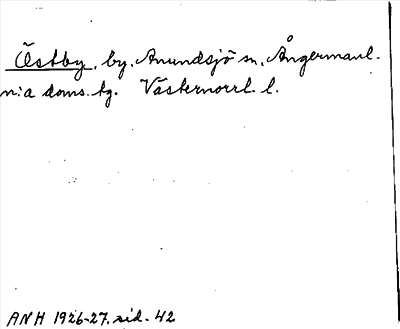 Östby, by, Anundsjö sn, Ångermanl.
n:a doms. tg. Västernorrl. l.
ANH 1926-27. sid. 42